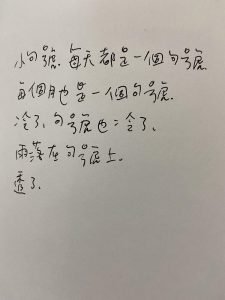 小句號. 每天都是一個句號.
每個月也是一個句號.
冷了, 句號也冷了.
雨落在句號上.
透了.